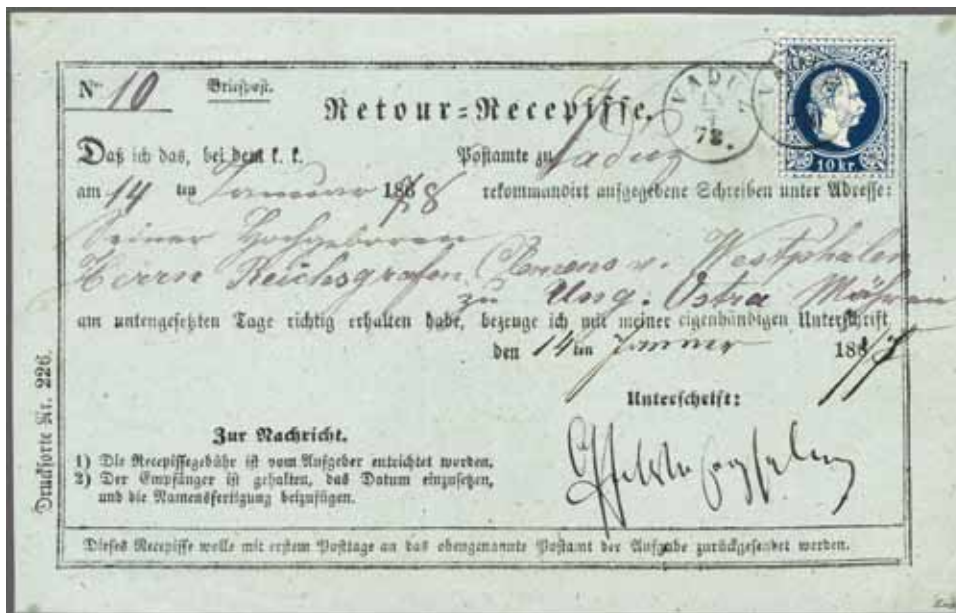 Nro 10
Briefpost.
Retour-Recepisse.
VADUZ
72.
10 kr.
Daß ich das, bei dem k. k. Postamte zu Vaduz
am 14 ten Januar 1868 rekommandirt aufgegebene Schreiben unter Adresse:
Seiner Hochgeboren
Herrn Reichsgrafen Clemens v. Westphalen
zu Ung. Ostra Mähren
am untengesetzten Tage richtig erhalten habe, bezeuge ich mit meiner eigenhändigen Unterschrift
den 14 ten Jänner 18
Unterschrift:
Zur Nachricht.
1) Die Recepissegebühr ist vom Aufgeber entrichtet worden.
2) Der Empfänger ist gehalten, das Datum einzusetzen,
und die Namensfertigung beizufügen.
Dieses Recepisse wolle mit erstem Posttage an das obengenannte Postamt der Aufgabe zurückgesendet werden.
Drucksorte Nr. 226.